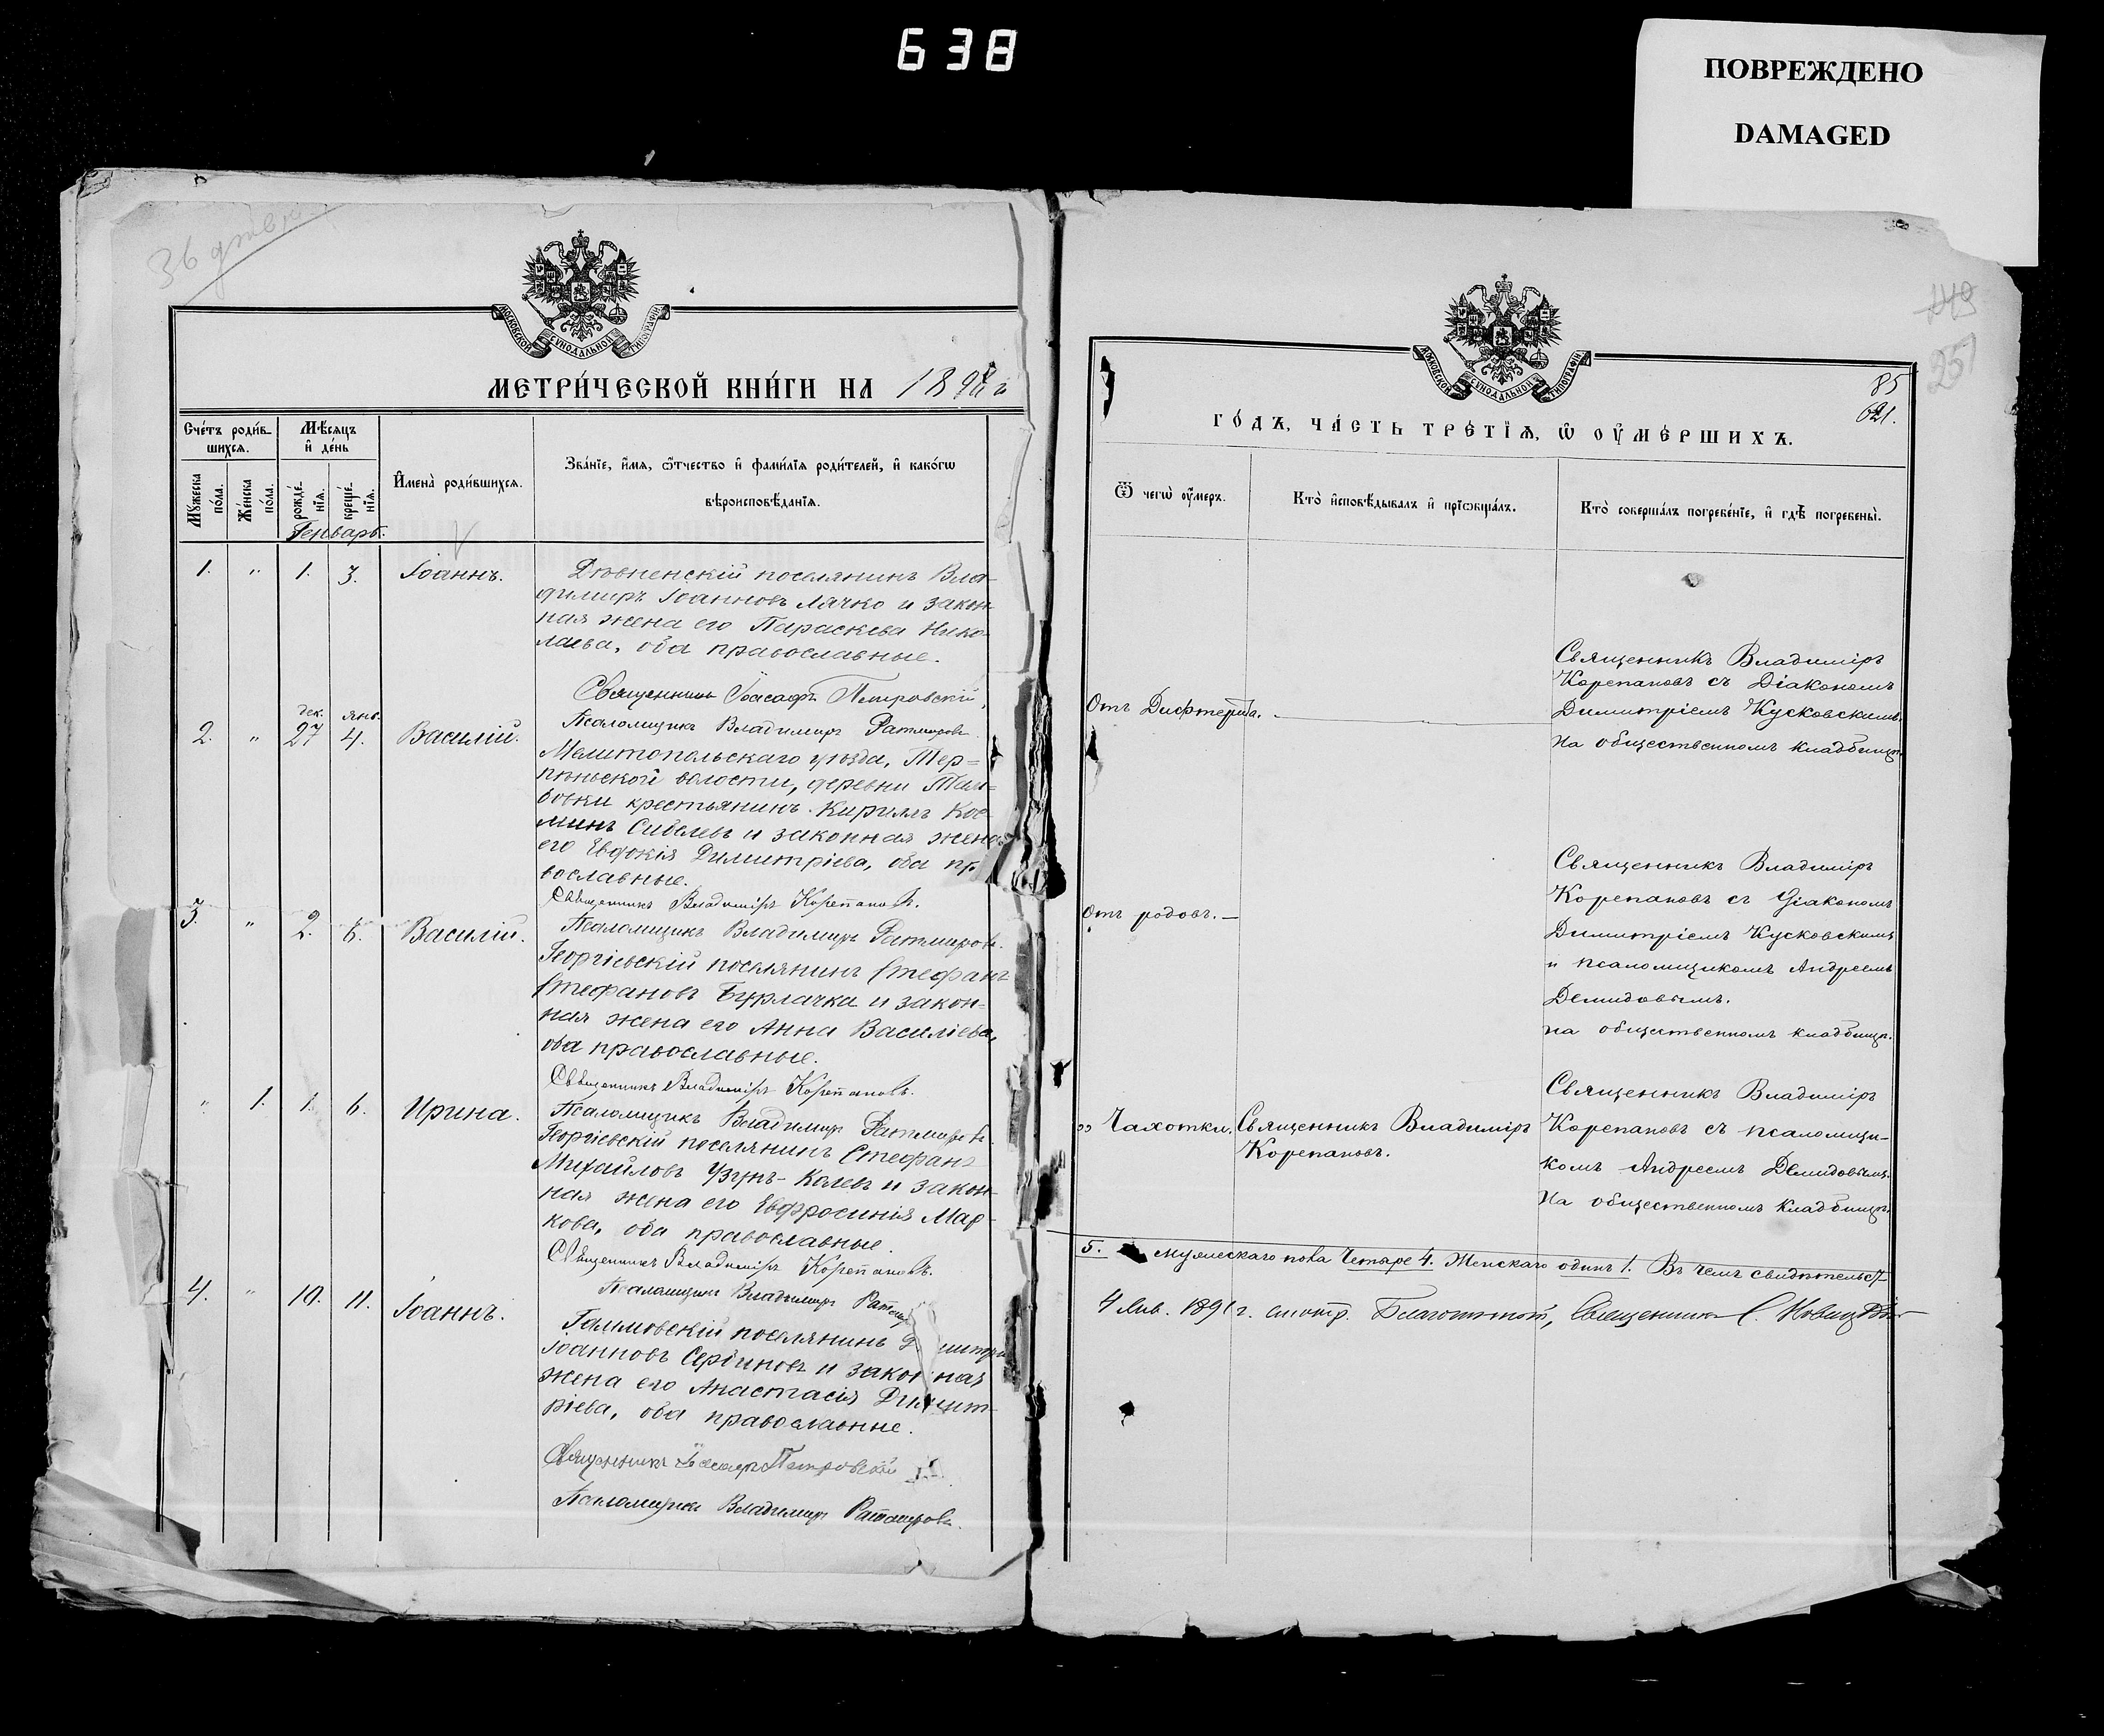 638
ПОВРЕЖДЕНО
DAMAGED
МОСКОВСКОЙ СѴНОДАЛЬНОЙ ТИПОГРАФІИ
МЕТРИ́ЧЕСКОЙ КНИ́ГИ НА 189
Сче́тъ роди́в-
шихсѧ.
Мꙋ́жеска по́ла.
Же́нска по́ла.
Мѣ́сѧцъ
и҆ де́нь
рожде́-
нїѧ.
креще́-
нїѧ.
И҆мена̀ роди́вшихсѧ.
Зва́нїе, и҆́мѧ, ѻ҆́тчество и҆ фами́лїѧ роди́телей, и҆ како́гѡ
вѣроисповѣ́данїѧ.
Генварь.
1. " 1. 3. Іоаннъ.
поселянинъ Вла-
димиръ Іоанновъ Лячко и закон-
ная жена его Параскева Нико-
лаева, оба православные.
Священникъ Іоасафъ Петровскій,
Псаломщикъ Владимиръ Ратмировъ.
2. " дек. 27 янв. 4. Василій.
Мелитопольскаго уѣзда, Тер-
пѣньской волости, деревни Там-
бовки крестьянинъ Кириллъ Кос-
минъ и законная жена
его Евдокія Димитріева, оба пр
вославные.
Священникъ Владиміръ Корепановъ.
Псаломщикъ Владимиръ Ратмировъ.
3. " 2. 6. Василій.
Георгіевскій поселянинъ Стефанъ
Стефановъ Бурлачка и закон-
ная жена его Анна Василіева,
оба православные.
Священникъ Владиміръ Корепановъ.
Псаломщикъ Владимиръ Ратмировъ.
" 1. 1. 6. Ирина.
Георгіевскій поселянинъ Стефанъ
Михайловъ Узунъ-Колевъ и закон-
ная жена его Евфросинія Мар-
кова, оба православные.
Священникъ Владиміръ Корепановъ.
Псаломщикъ Владимиръ
4. " 10. 11. Іоаннъ.
поселянинъ
Іоанновъ и законная
жена его Анастасія Димит-
ріева, оба православные.
Священникъ Іоасафъ Петровскій
Псаломщикъ Владимиръ Ратмировъ.
149
251
85
621.
МОСКОВСКОЙ СѴНОДАЛЬНОЙ ТИПОГРАФІИ
ГО́ДЪ, ЧА́СТЬ ТРЕ́ТЇѦ, Ѡ҆ ОУ҆МЕ́РШИХЪ.
Ѿ чегѡ̀ оу҆́меръ.
Кто̀ и҆сповѣ́дывалъ и҆ прїѡбща́лъ.
Кто̀ соверша́лъ погребе́нїе, и҆ гдѣ̀ погребены̀.
Отъ Дифтерита.
Священникъ Владиміръ
Корепановъ съ Діакономъ
Димитріемъ Кусковскимъ.
На общественномъ кладбищѣ.
Отъ родовъ.
Священникъ Владиміръ
Корепановъ съ Діакономъ
Димитріемъ Кусковскимъ
и псаломщикомъ Андреемъ
Демидовымъ.
на общественномъ кладбищѣ.
" Чахотки. Священникъ Владиміръ
Корепановъ.
Священникъ Владиміръ
Корепановъ съ псаломщи-
комъ Андреемъ Демидовымъ.
На общественномъ кладбищѣ.
5. мужескаго пола Четыре 4. Женскаго одинъ 1. Въ чемъ
4 Янв. 1891 г. смотр. Благочинный, Священникъ С.